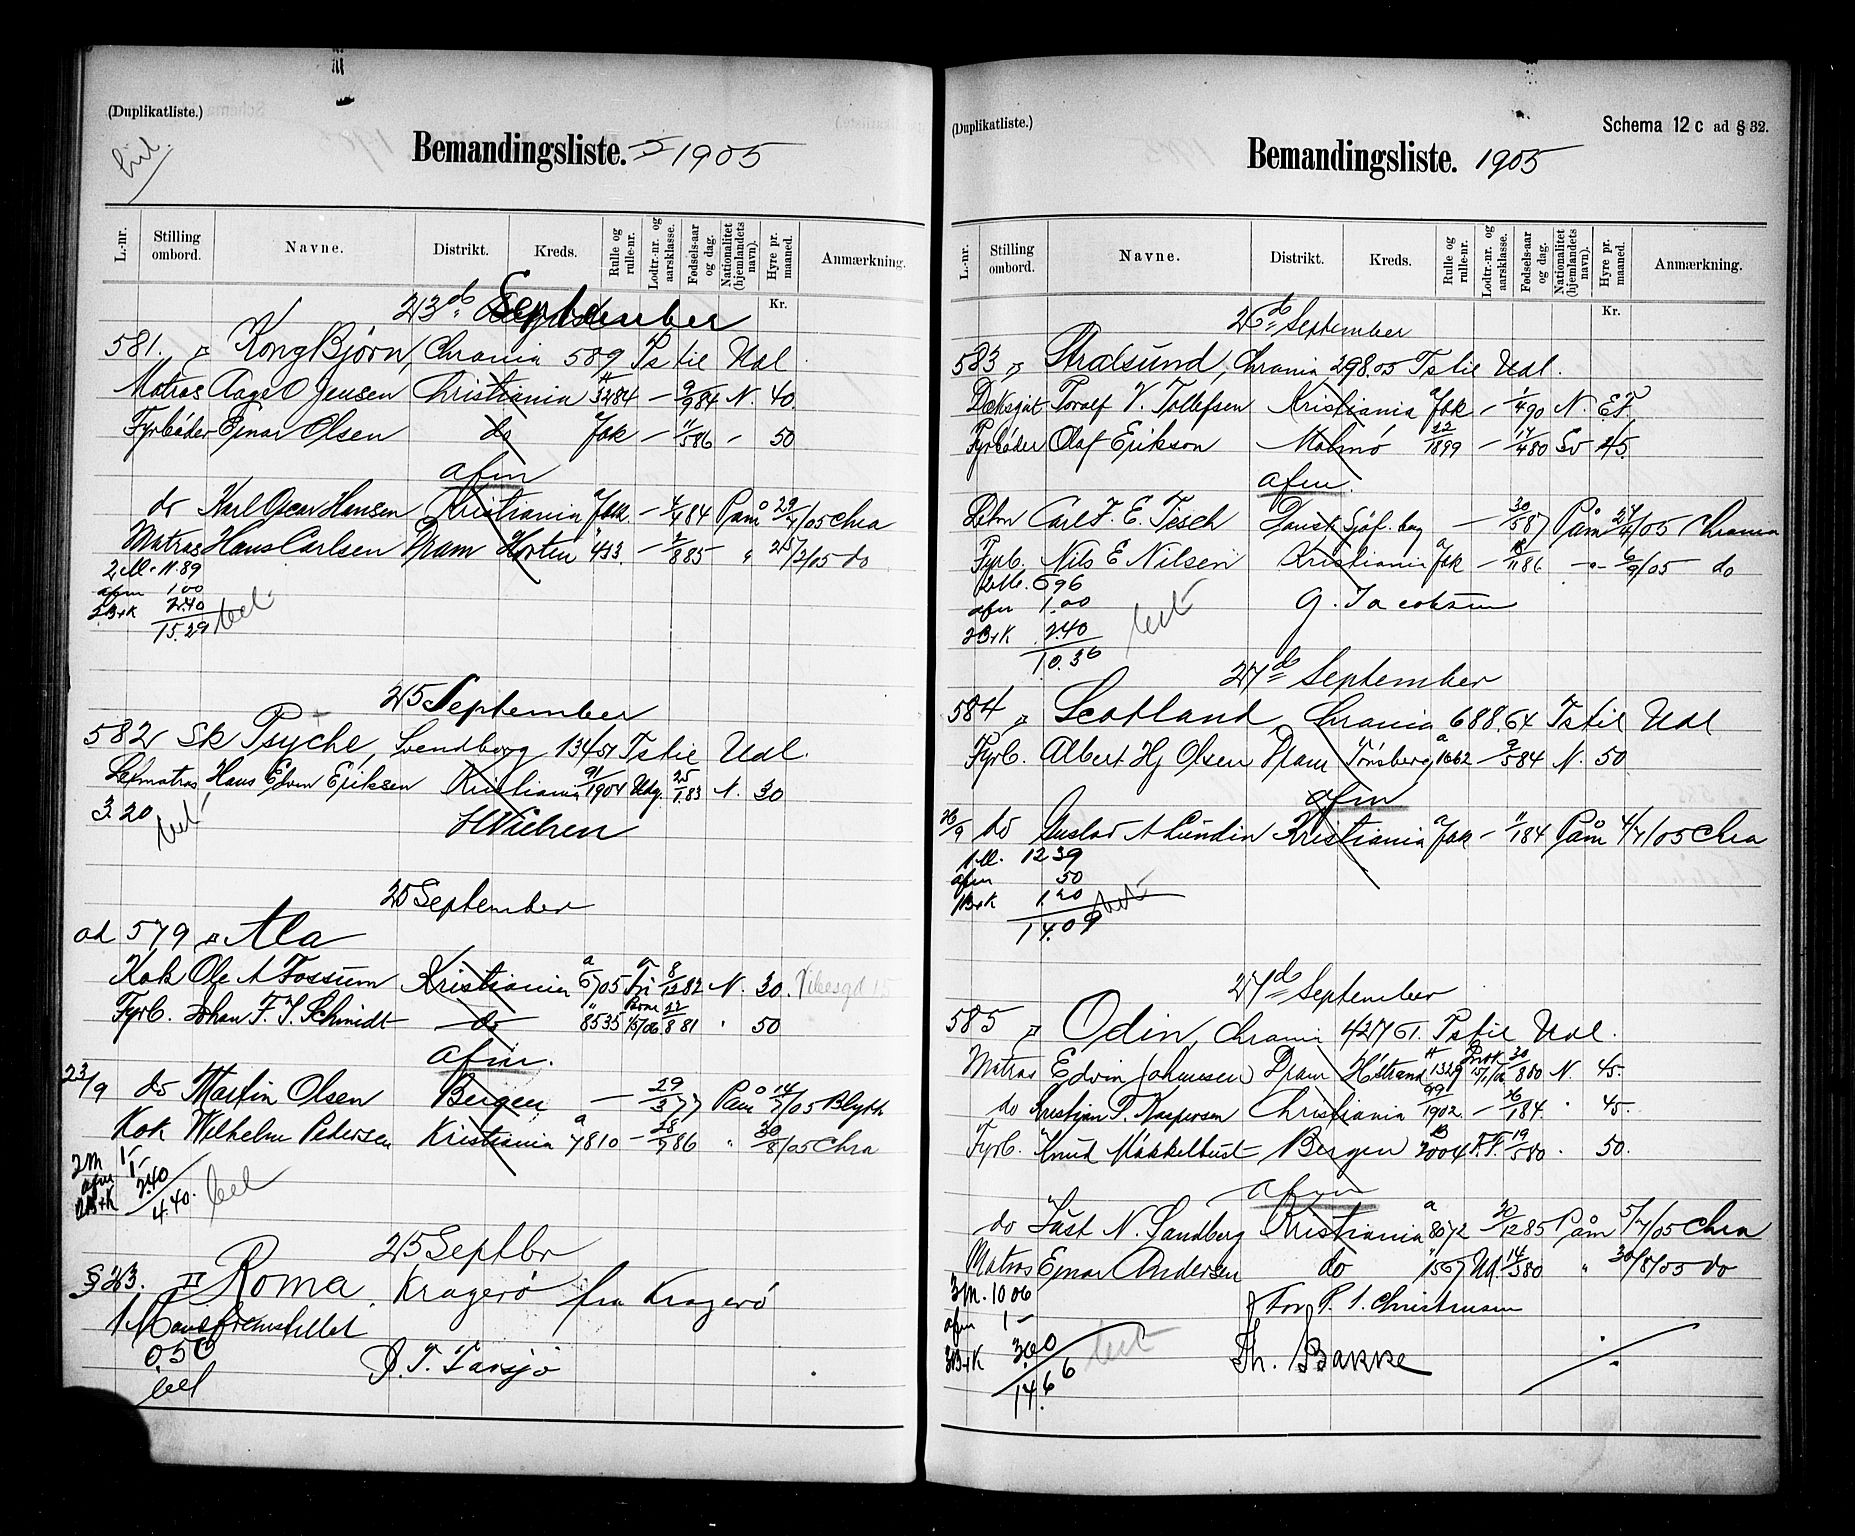 (Duplikatliste.)
Bemandingsliste. 1905
L.-nr. Stilling ombord. Navne. Distrikt. Kreds. Rulle og rulle-nr. Lodtr.-nr. og aarsklasse. Fødsels-aar og dag. Nationalitet (hjemlandets navn). Hyre pr. maaned. Anmærkning.
Kr.
23de September
581. Kong Bjørn, Chrania 589 Ts til Udl
Matros Aage O Jensen Christiania 3284 — 9/9 84 N. 40.
Fyrbøder Ejnar Olsen do — 50
afm
do Karl Oscar Hansen Kristiania — 4/4 84 Påm 29/7/05 Chra
Matros Hans Carlsen Dram Horten 433. — 2/8 85 " 25/2/05 do
2 M. 11.89
afm 1.00
2B+K 2.40
15.29
25 September
582 Sk Psyche, Svendborg 134/51 Ts til Udl.
Letmatros Hans Edvin Eriksen Kristiania 91/1904 Udg. 25/1.83 N. 30
3.20
H Nielsen
25 September
ad 579 Ala
Kok Ole A Fossum Kristiania 6705 Fri 8/12 82 N. 30.
Fyrb. Johan F. J. Schmidt do 8535 15/06 22/8 81 " 50
afm.
23/9 do Martin Olsen Bergen — 29/3 77 Påm 14/7/05 Blyth
Kok Wilhelm Pedersen Kristiania a 7810 — 28/7 86 " 30/8/05 Chra
2M 1-
afm 1-
2B+K 2.40
4.40.
25 Septbr
§ 23. Roma, Kragerø fra Kragerø
1 Mand fremstillet
0.50
(Duplikatliste.)
Schema 12 c ad § 32.
Bemandingsliste. 1905
L.-nr. Stilling ombord. Navne. Distrikt. Kreds. Rulle og rulle-nr. Lodtr.-nr. og aarsklasse. Fødsels-aar og dag. Nationalitet (hjemlandets navn). Hyre pr. maaned. Anmærkning.
Kr.
26de September
583 Stralsund, Chrania 298.05 Ts til Udl.
Dæksgut Toralf V. Tollefsen Kristiania — 1/4 90 N.
Fyrbøder Olaf Erikson Malmö 22/1899 — 17/4 80 Sv 45.
afm.
Carl F. E. Tesch Dansk Sjøf. bog — 30/5 87 Påm 27/4/05 Chrania
Fyrb. Nils E Nilsen Kristiania — 86 -"- 6/9/05 do
2 M. 6 96
afm 1.00
2B+K 2.40
10.36
G. Jacobsen
27de September
584 Scotland, Chrania 688,64 Ts til Udl
Fyrb. Albert Hj Olsen Dram Tønsberg 1662 — 9/5 84 N. 50
afm
26/9 do Gustav A Lundin Kristiania — 84 Påm 4/7/05 Chra
1 M. 12 39
afm 50
1B+K 1.20
14.09
27de September
585 Odin, Chrania 427,61. Ts til Udl.
Matros Edvin Johannesen Dram Hstrand 1329 30/8 80 N. 45.
do Kristjan T. Kaspersen Christiania 99/1902. — 26/1 84 " 45.
Fyrb. Knud Makkelbust Bergen 2004 F.F. 19/5 80 " 50.
afm
do Just N. Sandberg Kristiania a 8072 30/12 85 Påm 5/7/05 Chra
Matros Ejnar Andersen do 14/5 80 " 30/8/05 do
3 M. 10 06
afm 1 -
3B+K 3.60
14.66
For P. I. Christensen
Th. Bakke